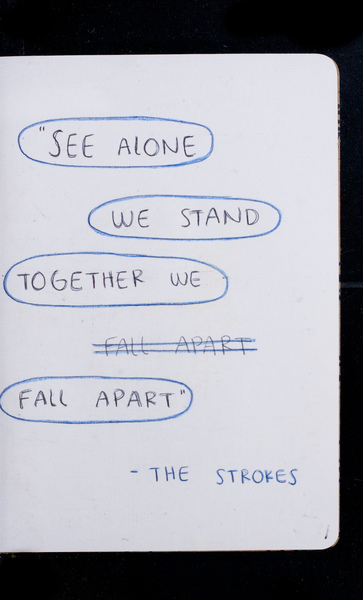 "SEE ALONE
WE STAND
TOGETHER WE
FALL APART
FALL APART"
- THE STROKES